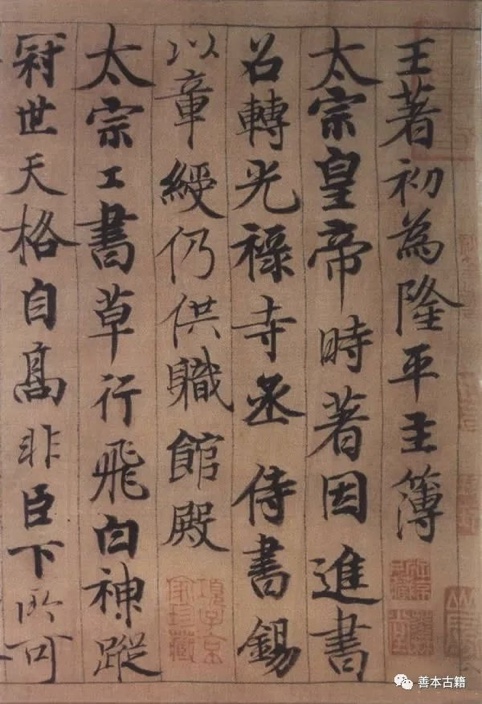 王著初為隆平主簿
太宗皇帝時著因進書
召轉光祿寺丞侍書錫
以章綬仍供軄館殿
太宗工書草行飛白神蹤
冠世天格自髙非臣下所可
項子京家珍藏
善本古籍